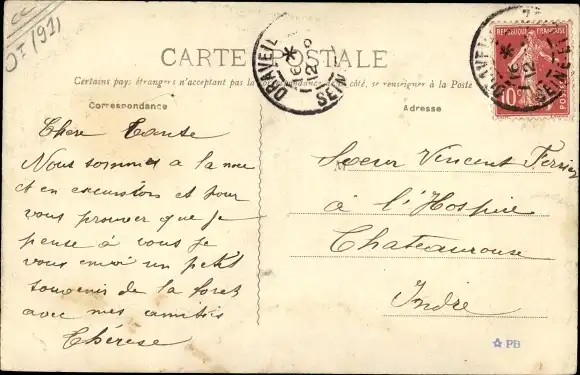 CC
OT (91)
CARTE POSTALE
Certains pays étrangers n'acceptant pas la correspondance de ce côté, se renseigner à la Poste
Correspondance
Adresse
DRAVEIL
16
12
SEINE
REPUBLIQUE FRANÇAISE
10
POSTES
DRAVEIL
16
12
SEINE
Chère Tante
Nous sommes a la noce
et en excursion et pour
vous prouver que je
pense à vous je
vous envoi un petit
souvenir de la foret
avec mes amitiés
Thérèse
Soeur Vincent Ferrier
à l'Hospice
Chateauroux
Indre
PB